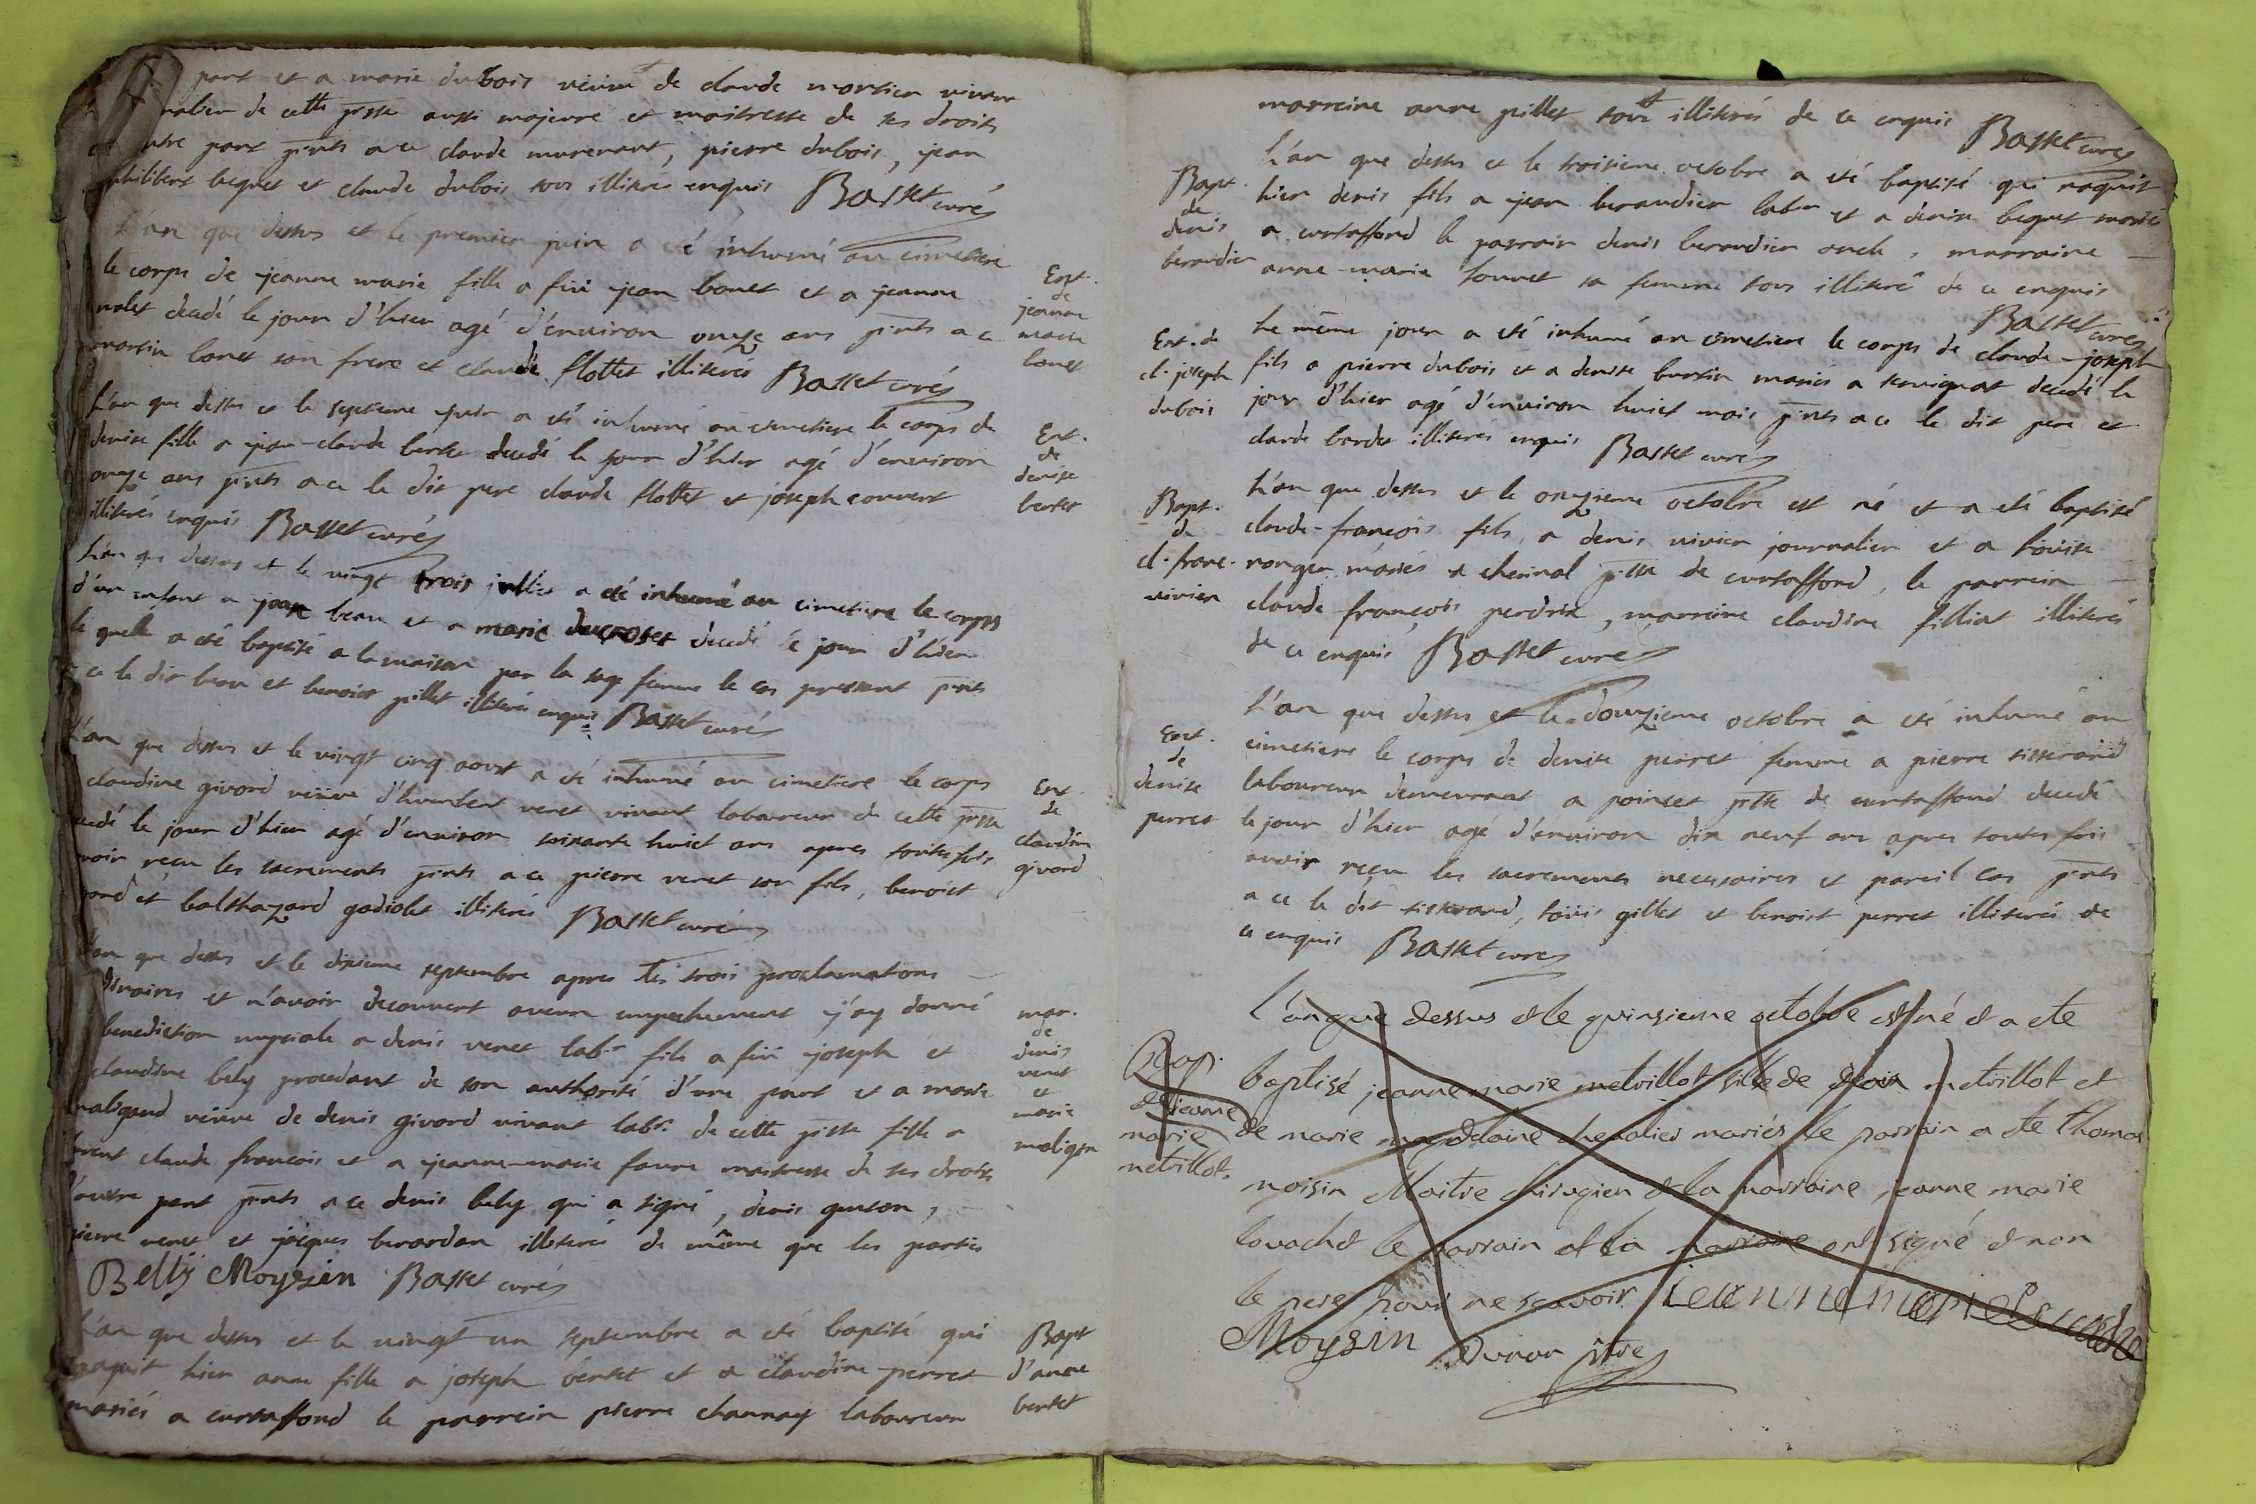 part et a marie dubois veuve de claude mortier vivant
nalier de cette psse aussi majeure et maitresse de ses droits
autre part pnts a ce claude murenant, pierre dubois, jean
philibert beguet et claude dubois tous illiterés enquis Basset curé
L'an que dessus et le premier juin a été inhumé au cimetiere
le corps de jeanne marie fille a fût jean bonet et a jeanne
nalet decedé le jour d'hier agé d'environ onze ans pnts a ce
martin bonet son frere et claude flottet illiterés Basset curé
Ent.
de
jeanne
marie
bonet
L'an que dessus et le septieme juin a eté inhumé au cimetiere le corps de
denise fille a jean-claude bertet decedé le jour d'hier agé d'environ
onze ans pnts a ce le dit pere claude flottet et joseph convert
illiterés enquis Basset curé
Ent.
de
denise
bertet
L'an que dessus et le vingt trois juillet a eté inhumé au cimetiere le corps
d'un enfant a jean beau et a marie ducroset decedé le jour d'hier
le quelle a eté baptisé a la maison par la sage femme le cas pressant pnts
a ce le dit beau et benoist pillet illiterés enquis Basset curé
L'an que dessus et le vingt cinq aoust a eté inhumé au cimetiere le corps
claudine givord veüve d'humbert venet vivant laboureur de cette psse
decedé le jour d'hier agé d'environ soixante huict ans apres toutes fois
avoir reçu les sacrements pnts a ce pierre venet son fils, benoist
et balthazard gadiolet illiterés Basset curé
Ent.
de
claudine
givord
L'an que dessus et le dixieme septembre apres les trois proclamations
ordinaires et n'avoir decouvert aucun empechement j'ay donné
benediction nuptiale a denis venet labr fils a fût joseph et
claudine bely procedant de son authorité d'une part et a marie
maligand veüve de denis givord vivant labr. de cette psse fille a
claude françois et a jeanne-marie favre maitresse de ses droits
d'autre part pnts a ce denis bely qui a signé, denis gueton,
pierre venet et jacques berardan illiterés de même que les parties
Belly Moyzin Basset curé
mar.
de
denis
venet
et
marie
maligan
L'an que dessus et le vingt un septembre a eté baptisé qui
naquit hier anne fille a joseph bertet et a claudine perret
mariés a curtaffond le parrein pierre channay laboureur
Bapt
d'anne
bertet
marreine anne pillet tous illiterés de ce enquis Basset curé
Bapt.
de
denis
beraudier
L'an que dessus et le troisieme octobre a eté baptisé qui naquit
hier denis fils a jean beraudier labr et a denise beguet mariés
a curtaffond le parrain denis beraudier oncle, marraine
anne-marie touvet sa femme tous illiterés de ce enquis
Basset curé
Ent. de
cl. joseph
dubois
Le même jour a eté inhumé au cimetiere le corps de claude-joseph
fils a pierre dubois et a denise burtin mariés a servignat decedé le
jour d'hier agé d'environ huict mois pnts a ce le dit pere et
claude bardet illiterés enquis Basset curé
Bapt.
de
cl. franc.
vivier
L'an que dessus et le onzieme octobre est né et a eté baptisé
claude-françois fils a denis vivier journalier et a loüise
ronger mariés a cherinal psse de curtaffond, le parrein
claude françois perdrix, marreine claudine filliat illiterés
de ce enquis Basset curé
Ent.
de
denise
perret
L'an que dessus et le douzieme octobre a eté inhumé au
cimetiere le corps de denise perret femme a pierre tisserand
laboureur demeurant a poinset psse de curtaffond decedé
le jour d'hier agé d'environ dix neuf ans apres toutes fois
avoir reçu les sacrements necessaires et pareil cas pnts
a ce le dit tisserand, loüis gillet et benoist perret illiterés de
ce enquis Basset curé
Bap.
de jeanne
marie
netvillot.
L'an que dessus et le quinsieme octobre est né et a ete
baptisé jeanne marie netvillot fille de denis netvillot et
de marie magdelaine chevalier mariés le parrain a ete thomas
moisin Maitre chirugien et la marraine jeanne marie
lovachet le parrain et la marraine ont signé et non
le pere pour ne scavoir jeanne marie
Moysin Duran ptre